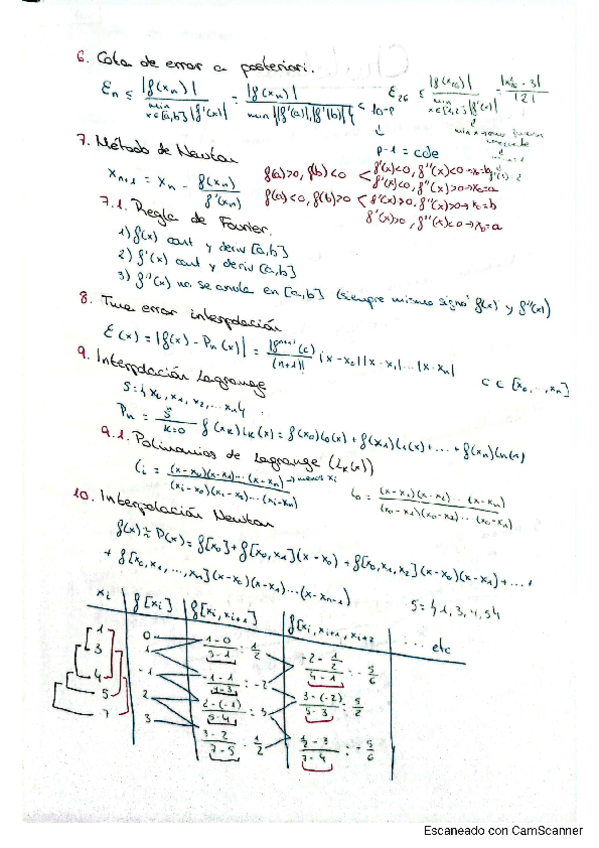 6. Cota de error a posteriori.
εn ≤ |f(xn)| / min x∈[a,b] |f'(x)| = |f(xn)| / min{|f'(a)|,|f'(b)|} < 10-p
p-1 = cde
ε26 ≤ |f(x10)| / min |f'(x)|
7. Método de Newton
xn+1 = xn - f(xn)/f'(xn)
f(a)>0, f(b)<0 < f'(x)<0, f''(x)<0 → x0=b
f'(x)<0, f''(x)>0 → x0=a
f(a)<0, f(b)>0 < f'(x)>0, f''(x)>0 → x0=b
f'(x)>0, f''(x)<0 → x0=a
7.1. Regla de Fourier.
1) f(x) cont y deriv [a,b]
2) f'(x) cont y deriv [a,b]
3) f''(x) no se anula en [a,b] (siempre mismo signo f(x) y f''(x))
8. Tma error interpolación
E(x) = |f(x) - Pn(x)| = |fn+1(c)|/(n+1)! |x-x0||x-x1|...|x-xn| c ∈ [x0,...,xn]
9. Interpolación Lagrange
S={x0, x1, x2, ... xn}
Pn = Σ k=0 f(xk)Lk(x) = f(x0)l0(x) + f(x1)l1(x) + ... + f(xn)ln(x)
9.1. Polinomios de Lagrange (Lk(x))
li = (x-x0)(x-x1)...(x-xn) → menos xi / (xi-x0)(xi-x1)...(xi-xn)
l0 = (x-x1)(x-x2)...(x-xn) / (x0-x1)(x0-x2)...(x0-xn)
10. Interpolación Newton
f(x) ≈ P(x) = f[x0] + f[x0,x1](x-x0) + f[x0,x1,x2](x-x0)(x-x1) + ...
+ f[x0,x1,...,xn](x-x0)(x-x1)...(x-xn-1)
S={1,3,4,5}
xi f[xi] f[xi,xi+1] f[xi,xi+1,xi+2 ... etc
1 0 1-0/3-1 = 1/2 -2-1/2 / 4-1 = -5/6
3 1 -1-1/1-3 = -2 3-(-2)/5-3 = 5/2
4 -1 2-(-1)/5-4 = 3 1/2-3 / 7-4 = -5/6
5 2 3-2/7-5 = 1/2
7 3
Escaneado con CamScanner